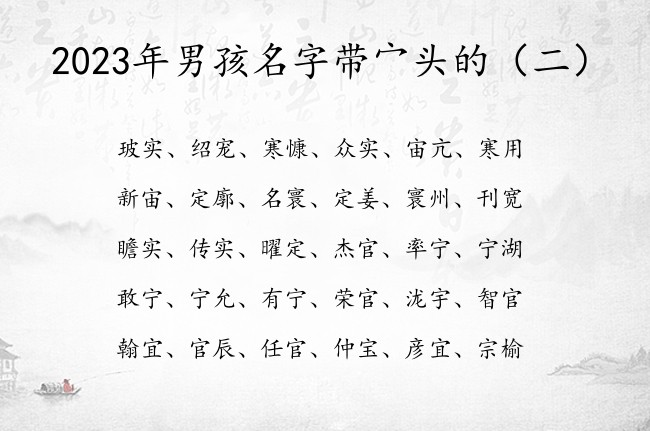 2023年男孩名字带宀头的（二）
玻实、绍宠、寒慷、众实、宙亢、寒用
新宙、定廓、名寰、定姜、寰州、刊宽
瞻实、传实、曜定、杰官、率宁、宁湖
敢宁、宁允、有宁、荣官、泷宇、智官
翰宜、官辰、任官、仲宝、彦宜、宗榆